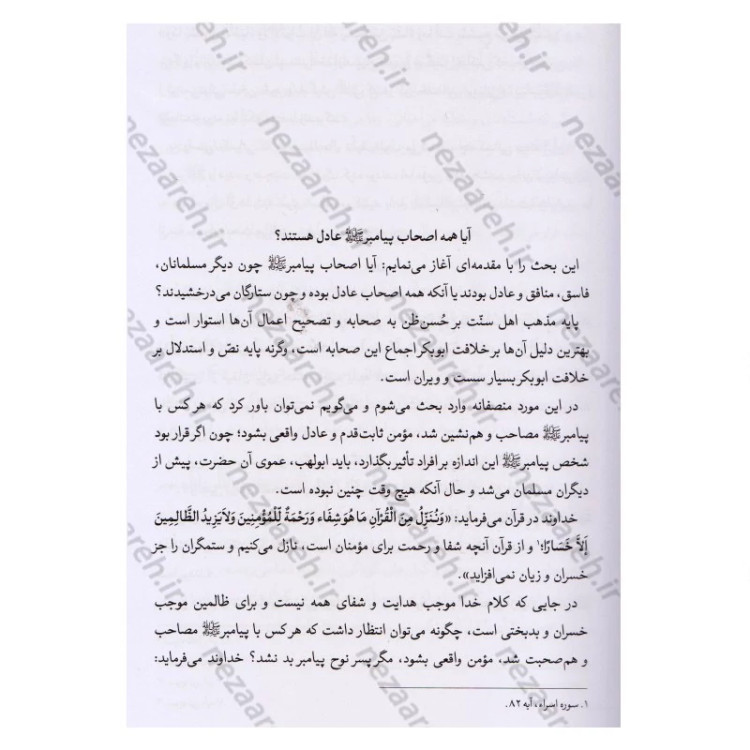 آیا همه اصحاب پیامبرﷺ عادل هستند؟
این بحث را با مقدمه‌ای آغاز می‌نمایم: آیا اصحاب پیامبرﷺ چون دیگر مسلمانان،
فاسق، منافق و عادل بودند یا آنکه همه اصحاب عادل بوده و چون ستارگان می‌درخشیدند؟
پایه مذهب اهل سنّت بر حُسن‌ظن به صحابه و تصحیح اعمال آن‌ها استوار است و
بهترین دلیل آن‌ها بر خلافت ابوبکر اجماع این صحابه است، وگرنه پایه نصّ و استدلال بر
خلافت ابوبکر بسیار سست و ویران است.
در این مورد منصفانه وارد بحث می‌شوم و می‌گویم نمی‌توان باور کرد که هر کس با
پیامبرﷺ مصاحب و هم‌نشین شد، مؤمن ثابت‌قدم و عادل واقعی بشود؛ چون اگر قرار بود
شخص پیامبرﷺ این اندازه بر افراد تأثیر بگذارد، باید ابولهب، عموی آن حضرت، پیش از
دیگران مسلمان می‌شد و حال آنکه هیچ وقت چنین نبوده است.
خداوند در قرآن می‌فرماید: «وَنُنَزِّلُ مِنَ الْقُرْآنِ مَا هُوَ شِفَاء وَرَحْمَةٌ لِّلْمُؤْمِنِينَ وَلاَ يَزِيدُ الظَّالِمِينَ
إَلاَّ خَسَارًا؛۱ و از قرآن آنچه شفا و رحمت برای مؤمنان است، نازل می‌کنیم و ستمگران را جز
خسران و زیان نمی‌افزاید».
در جایی که کلام خدا موجب هدایت و شفای همه نیست و برای ظالمین موجب
خسران و بدبختی است، چگونه می‌توان انتظار داشت که هر کس با پیامبرﷺ مصاحب
و هم‌صحبت شد، مؤمن واقعی بشود، مگر پسر نوح پیامبر بد نشد؟ خداوند می‌فرماید:
۱. سوره اسراء، آیه ۸۲.
nezaareh.ir